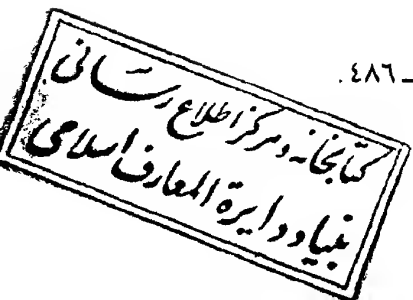 ـ٤٨٦.
کتابخانه و مرکز اطلاع رسانی
بنیاد دایرة المعارف اسلامی